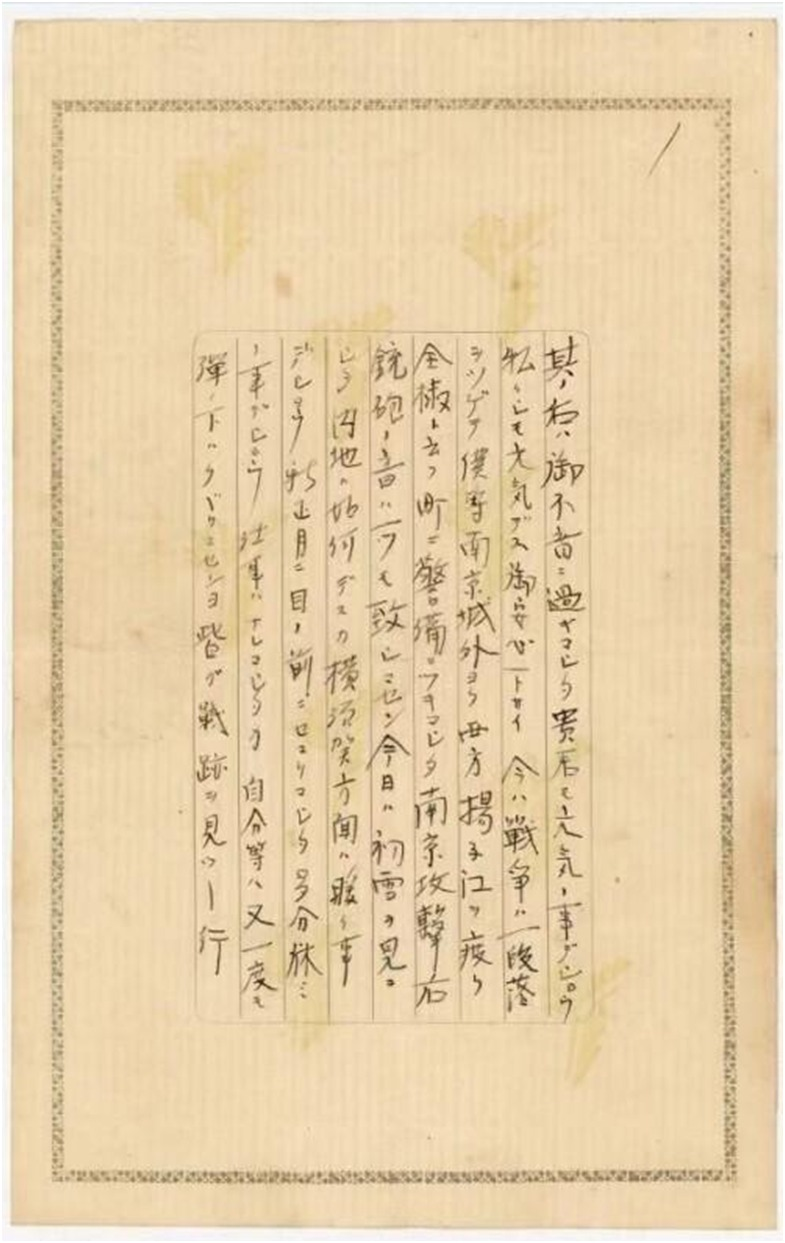 其ノ後ハ御不音ニ過ギマシタ貴君モ元気ノ事デショウ
私クシモ元気デス御安心下サイ 今ハ戦争ハ一段落
ヲツゲテ僕等南京城外ヨリ西方揚子江ヲ渡リ
全椒ト云フ町ニ警備ニツキマシタ南京攻撃后
銃砲ノ音ハ一ツモ致シマセン今日ハ初雪ヲ見マ
シタ 内地ハ如何デスカ横須賀方面ハ暖イ事
デショウ 新正月ニ目ノ前ニセマリマシタ多分休ミ
ノ事デショウ 仕事ハナレマシタカ 自分等ハ又一度モ
弾ノ下ハクグリマセンヨ皆ガ戦跡ヲ見ツー行